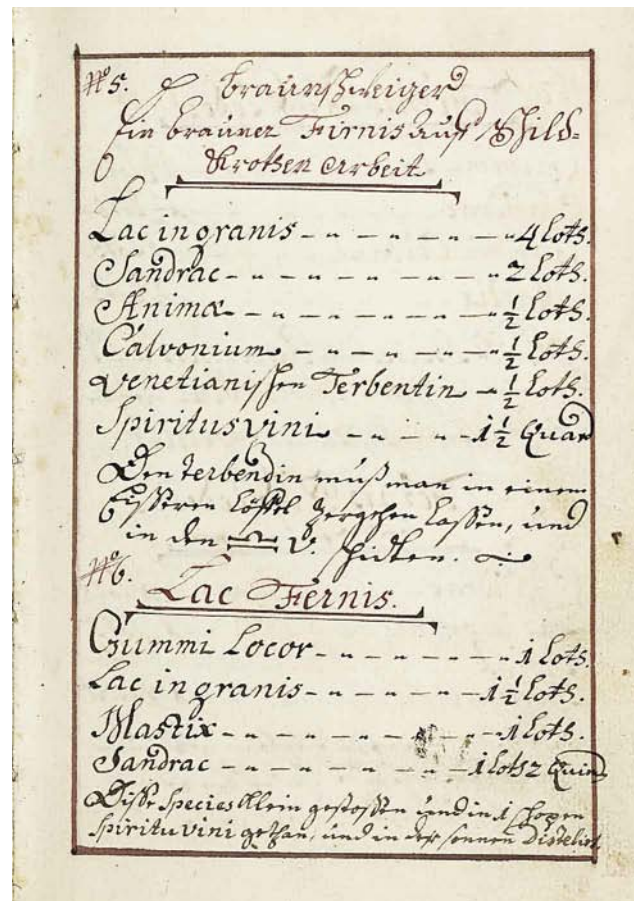 No 5.
Braunschweiger
Ein brauner Firnis Auf Schild=
Krothen Arbeit
Lac in granis - „ - „ - „ - „ 4 Loth.
Sandrac - „ - „ - „ - „ - „ 2 Loth.
Animæ - „ - „ - „ - „ - „ ½ Loth.
Calvonium - „ - „ - „ - „ ½ Loth.
Venetianischen Terbentin - ½ Loth.
Spiritus vini - „ - „ - 1 ½ Quard
Den Terbendin muß man in einem
Eisseren Löffel Zergehen Lassen, und
in den V. schidten.
No 6.
Lac Fernis.
Gummi Locor - „ - „ - „ - „ 1 Loth.
Lac in granis - „ - „ - „ - 1 ½ Loth.
Mastix - „ - „ - „ - „ - „ 1 Loth.
Sandrac - „ - „ - „ - „ - 1 Loth 2 Quin
Disse Species Klein gestossen und in 1 schopen
Spiritu vini gethan, und in der sonnen Distelirt.